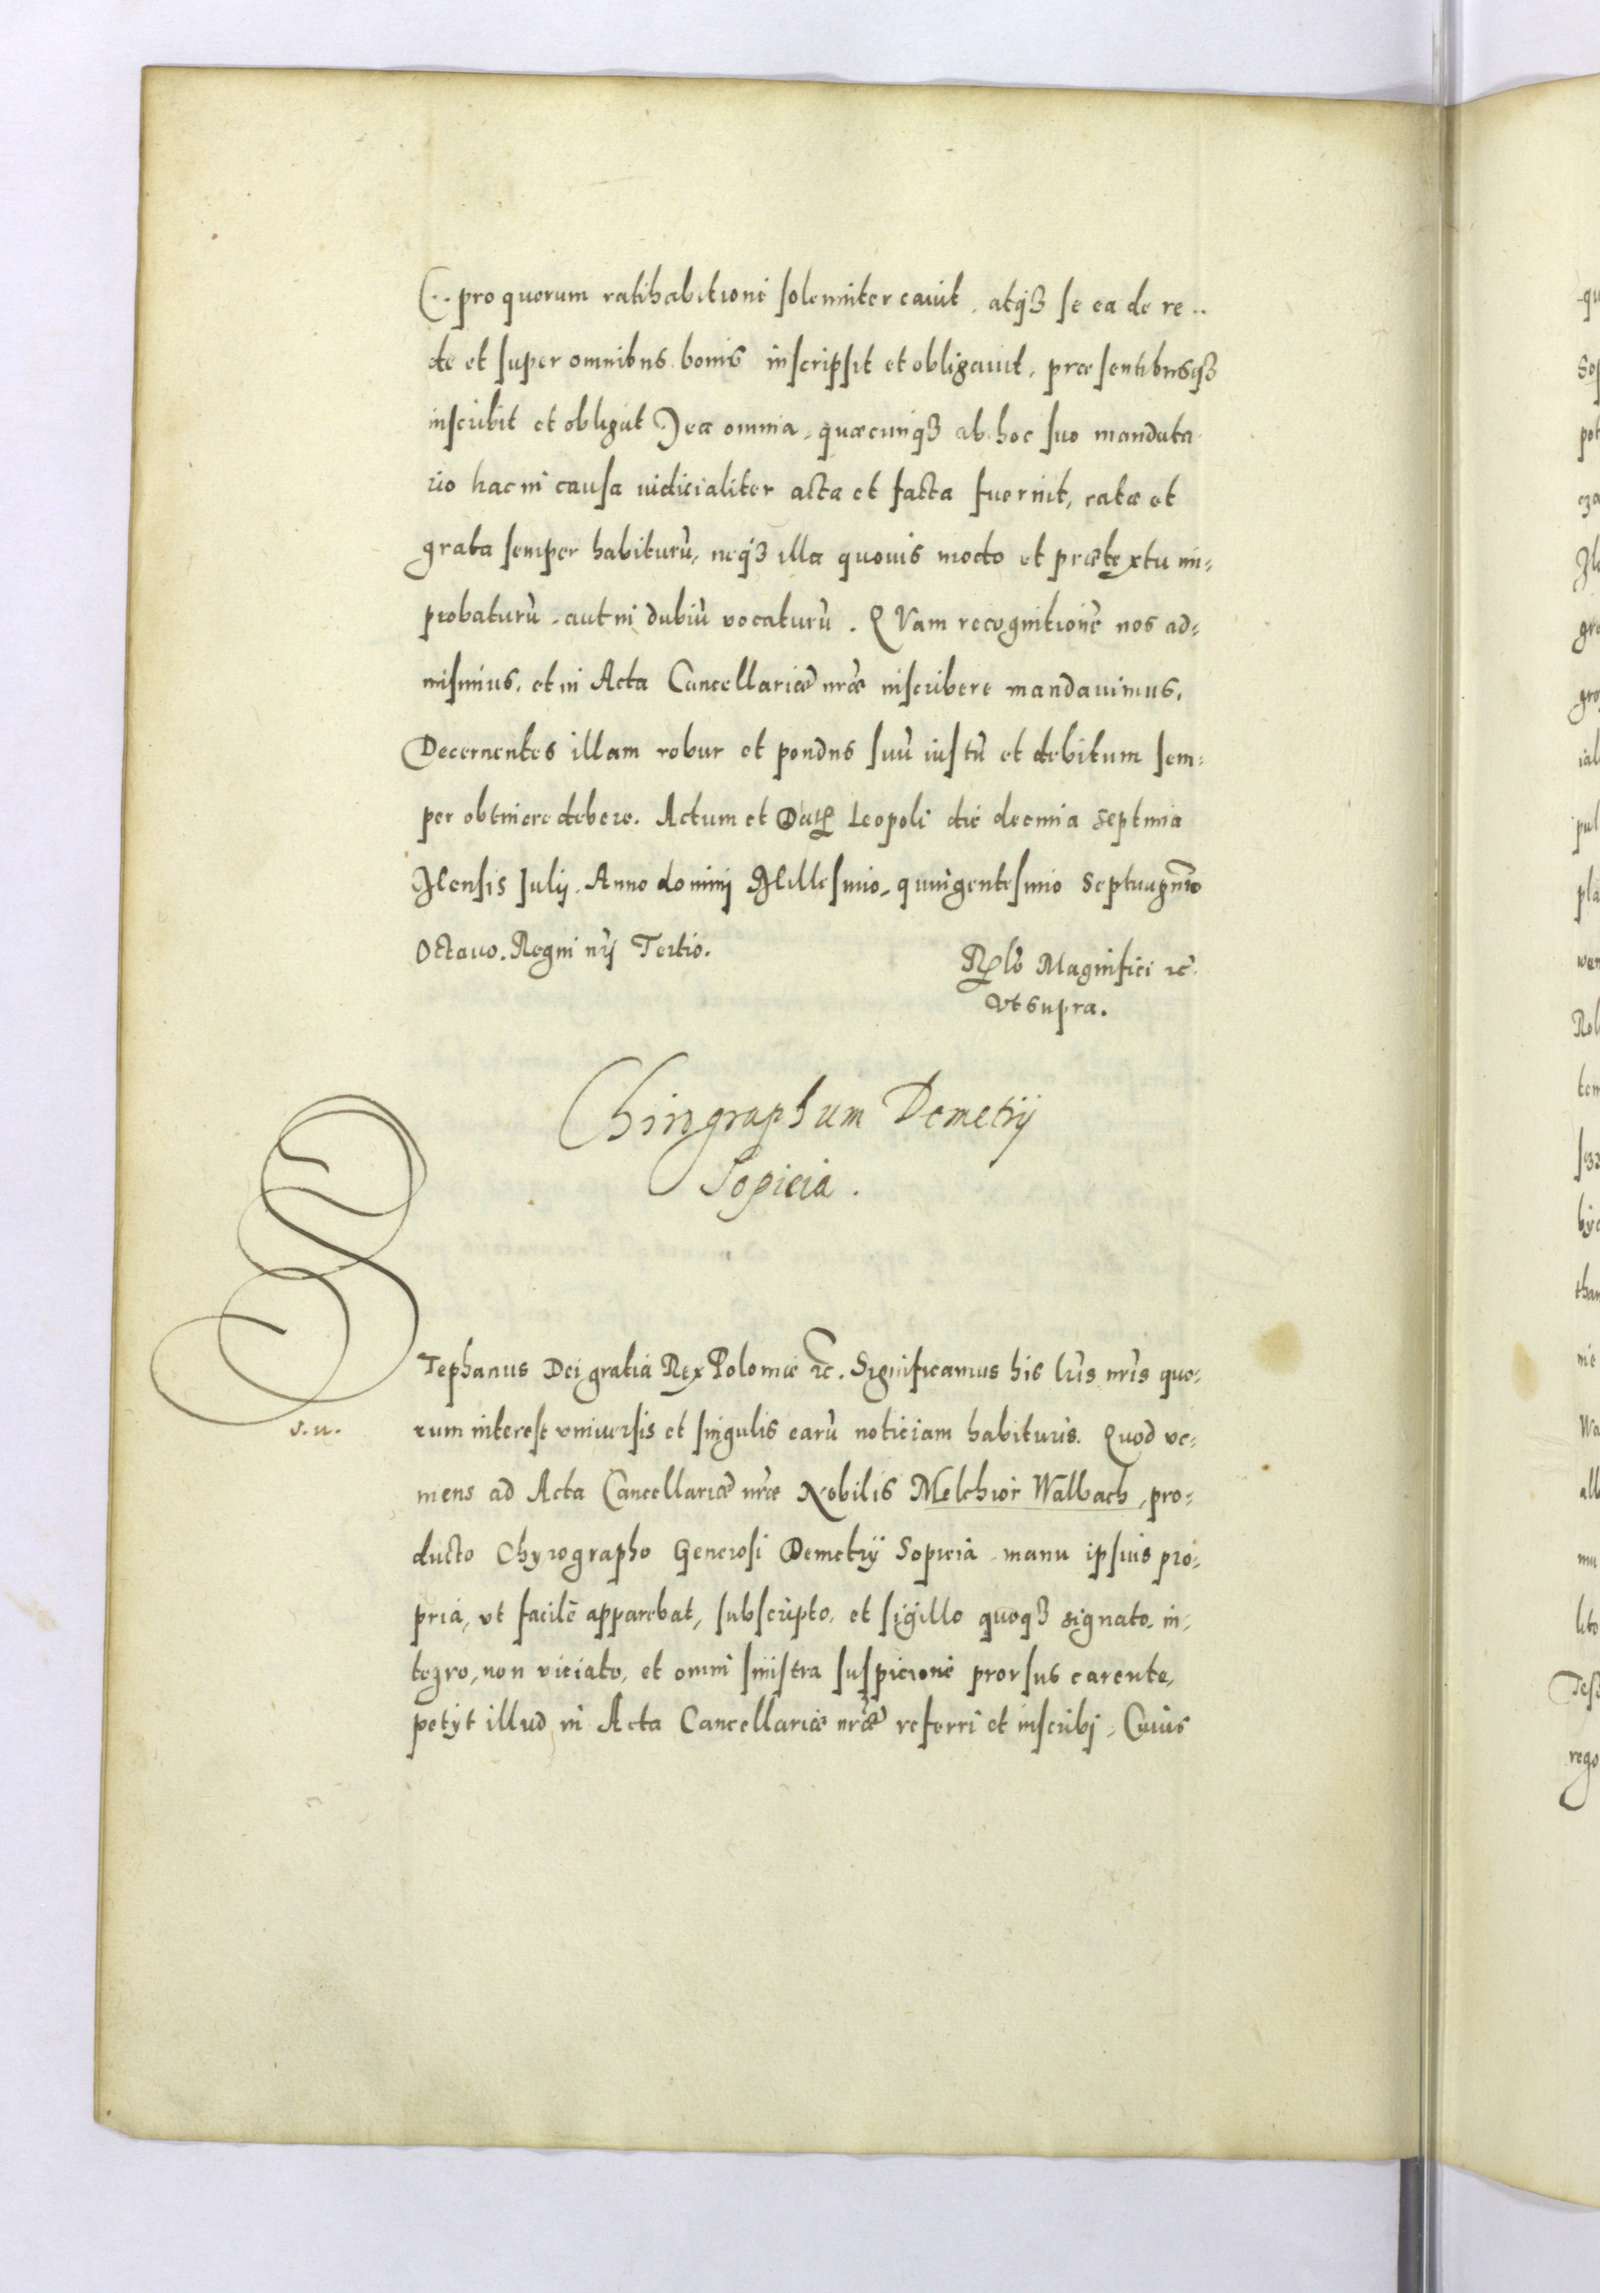 pro quorum ratihabitione solenniter cauit, atq3 se ea de re
de et super omnibus bonis inscripsit et obligauit, præsentibusq3
inscribit et obligat Jea omnia, quæcunq3 ab hoc suo mandata
rio hac in causa iudicialiter acta et facta fuerint, rata et
grata semper habiturū, neq3 illa quouis modo et prætextu im=
probaturū, aut in dubiū vocaturū. QVam recognitionē nos ad=
misimus, et in Acta Cancellariæ nr̄æ inscribere mandauimus,
Decernentes illam robur et pondus suū iustū et debitum sem=
per obtinere debere. Actum et Leopoli die decima septima
Mensis Julij. Anno domini Millesimo, quingentesimo
Octauo. Regni nr̄j Tertio.
Magnifici ꝛc̄
Vt supra.
Chirographum Demetrij
Sopicia.
STephanus Dei gratia Rex Poloniæ ꝛc. Significamus his lr̄is nr̄is quo=
s. u.
rum interest vniuersis et singulis earū noticiam habituris. Quod ve=
niens ad Acta Cancellariæ nr̄æ Nobilis Melchior Walbach, pro=
ducto Chyrographo Generosi Demetrÿ Sopicia, manu ipsius pro=
pria, vt facilē apparebat, subscripto, et sigillo quoq3 signato, in=
tegro, non viciato, et omni sinistra suspicione prorsus carente,
petÿt illud in Acta Cancellariæ nr̄æ referri et inscribj, Cuius